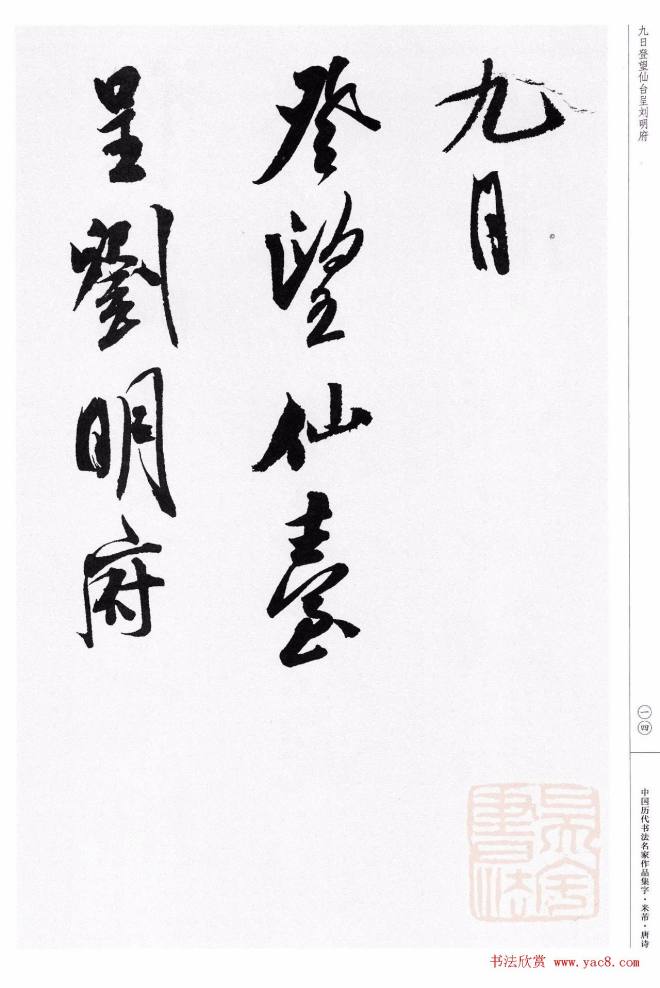 九月
登望仙臺
呈劉明府
九日登望仙台呈刘明府
一四
中国历代书法名家作品集字·米芾·唐诗
书法欣赏 www.yac8.com